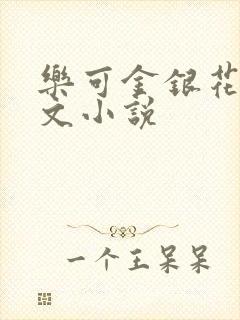 樂可金銀花
文小説
一个王呆呆